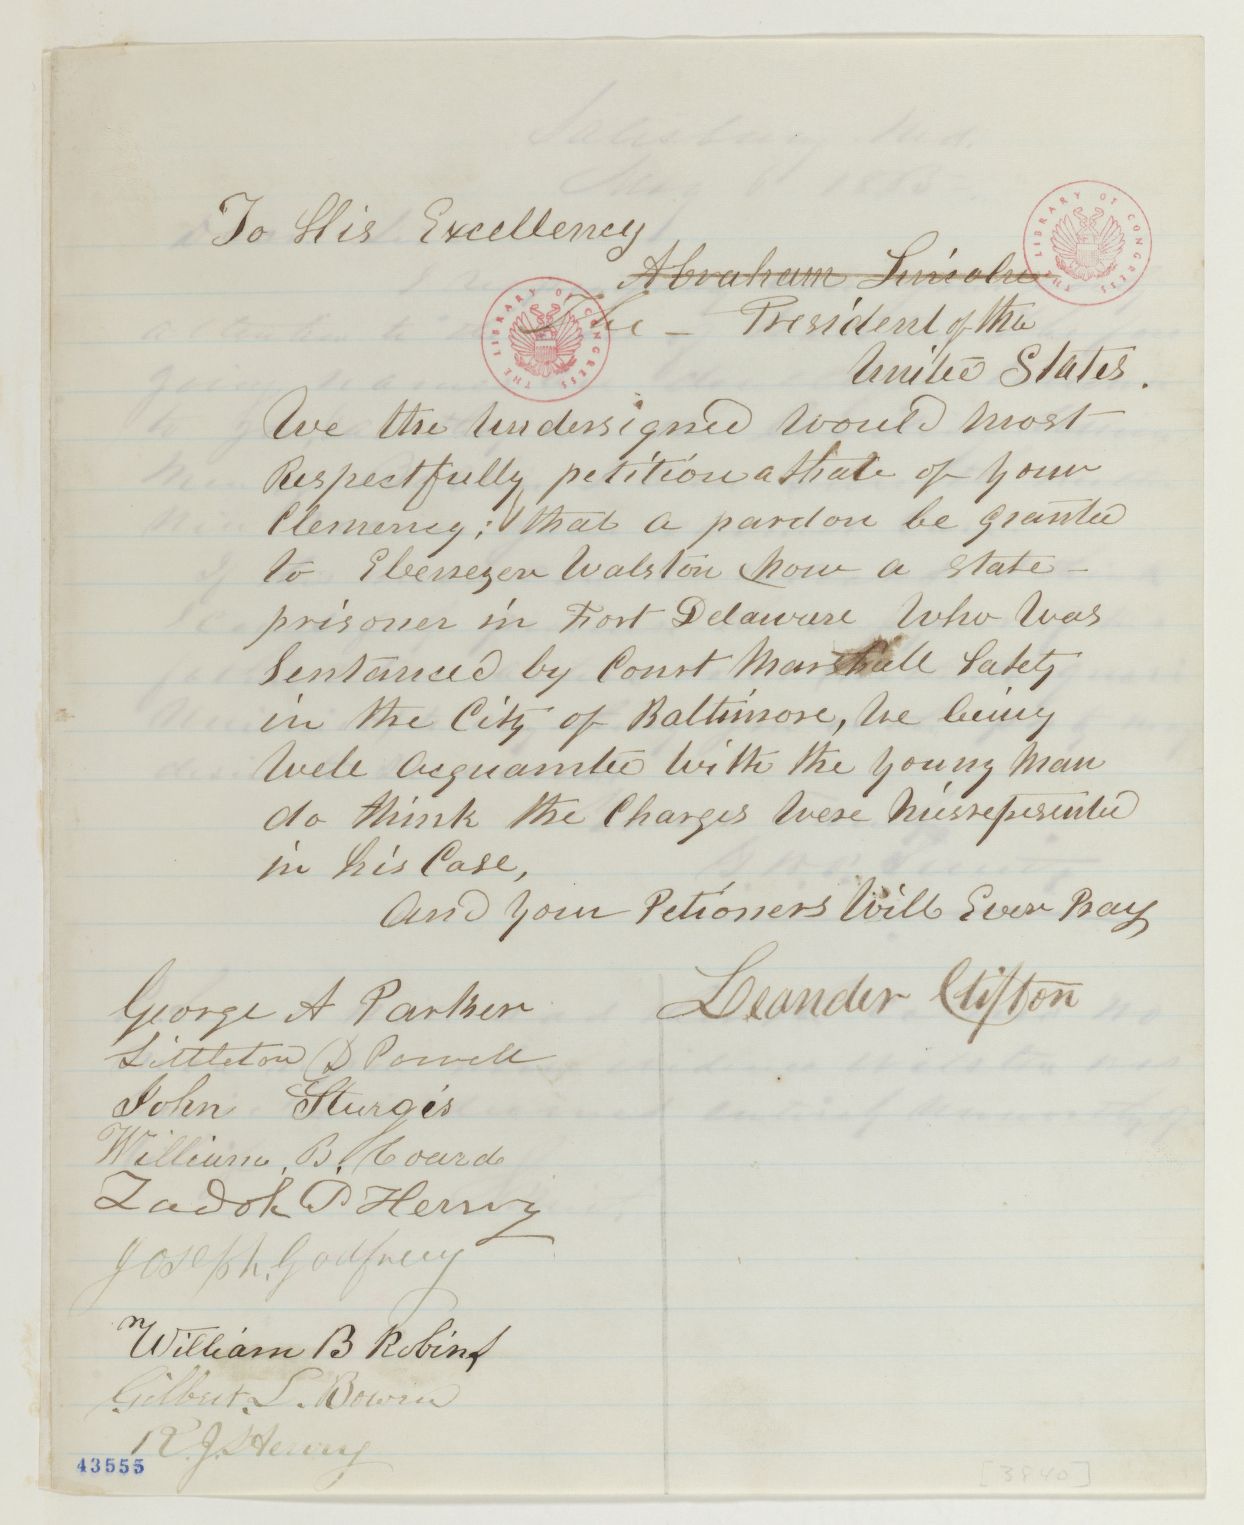 To His Excellency
Abraham Lincoln
The – President of the
United States.
We the undersigned would most
Respectfully petition a Share of your
Clemency; that a pardon be granted
to Ebenezer Walston now a state –
prisoner in Fort Delaware who was
Sentanced by Court Marshall Lately
in the City of Baltimore, We being
Well Acquainted with the young man
do think the Charges were misrepresented
in his Case,
And your Petioners Will Ever Pray
Leander Clifton
George A Parker
Littleton D Powell
John Sturgis
William. B. Coard
Zadok P Henry
Joseph. Godfrey
William B Robins
Gilbert. L. Bowen
R. J. Henry
THE LIBRARY OF CONGRESS
THE LIBRARY OF CONGRESS
43555
[3840]